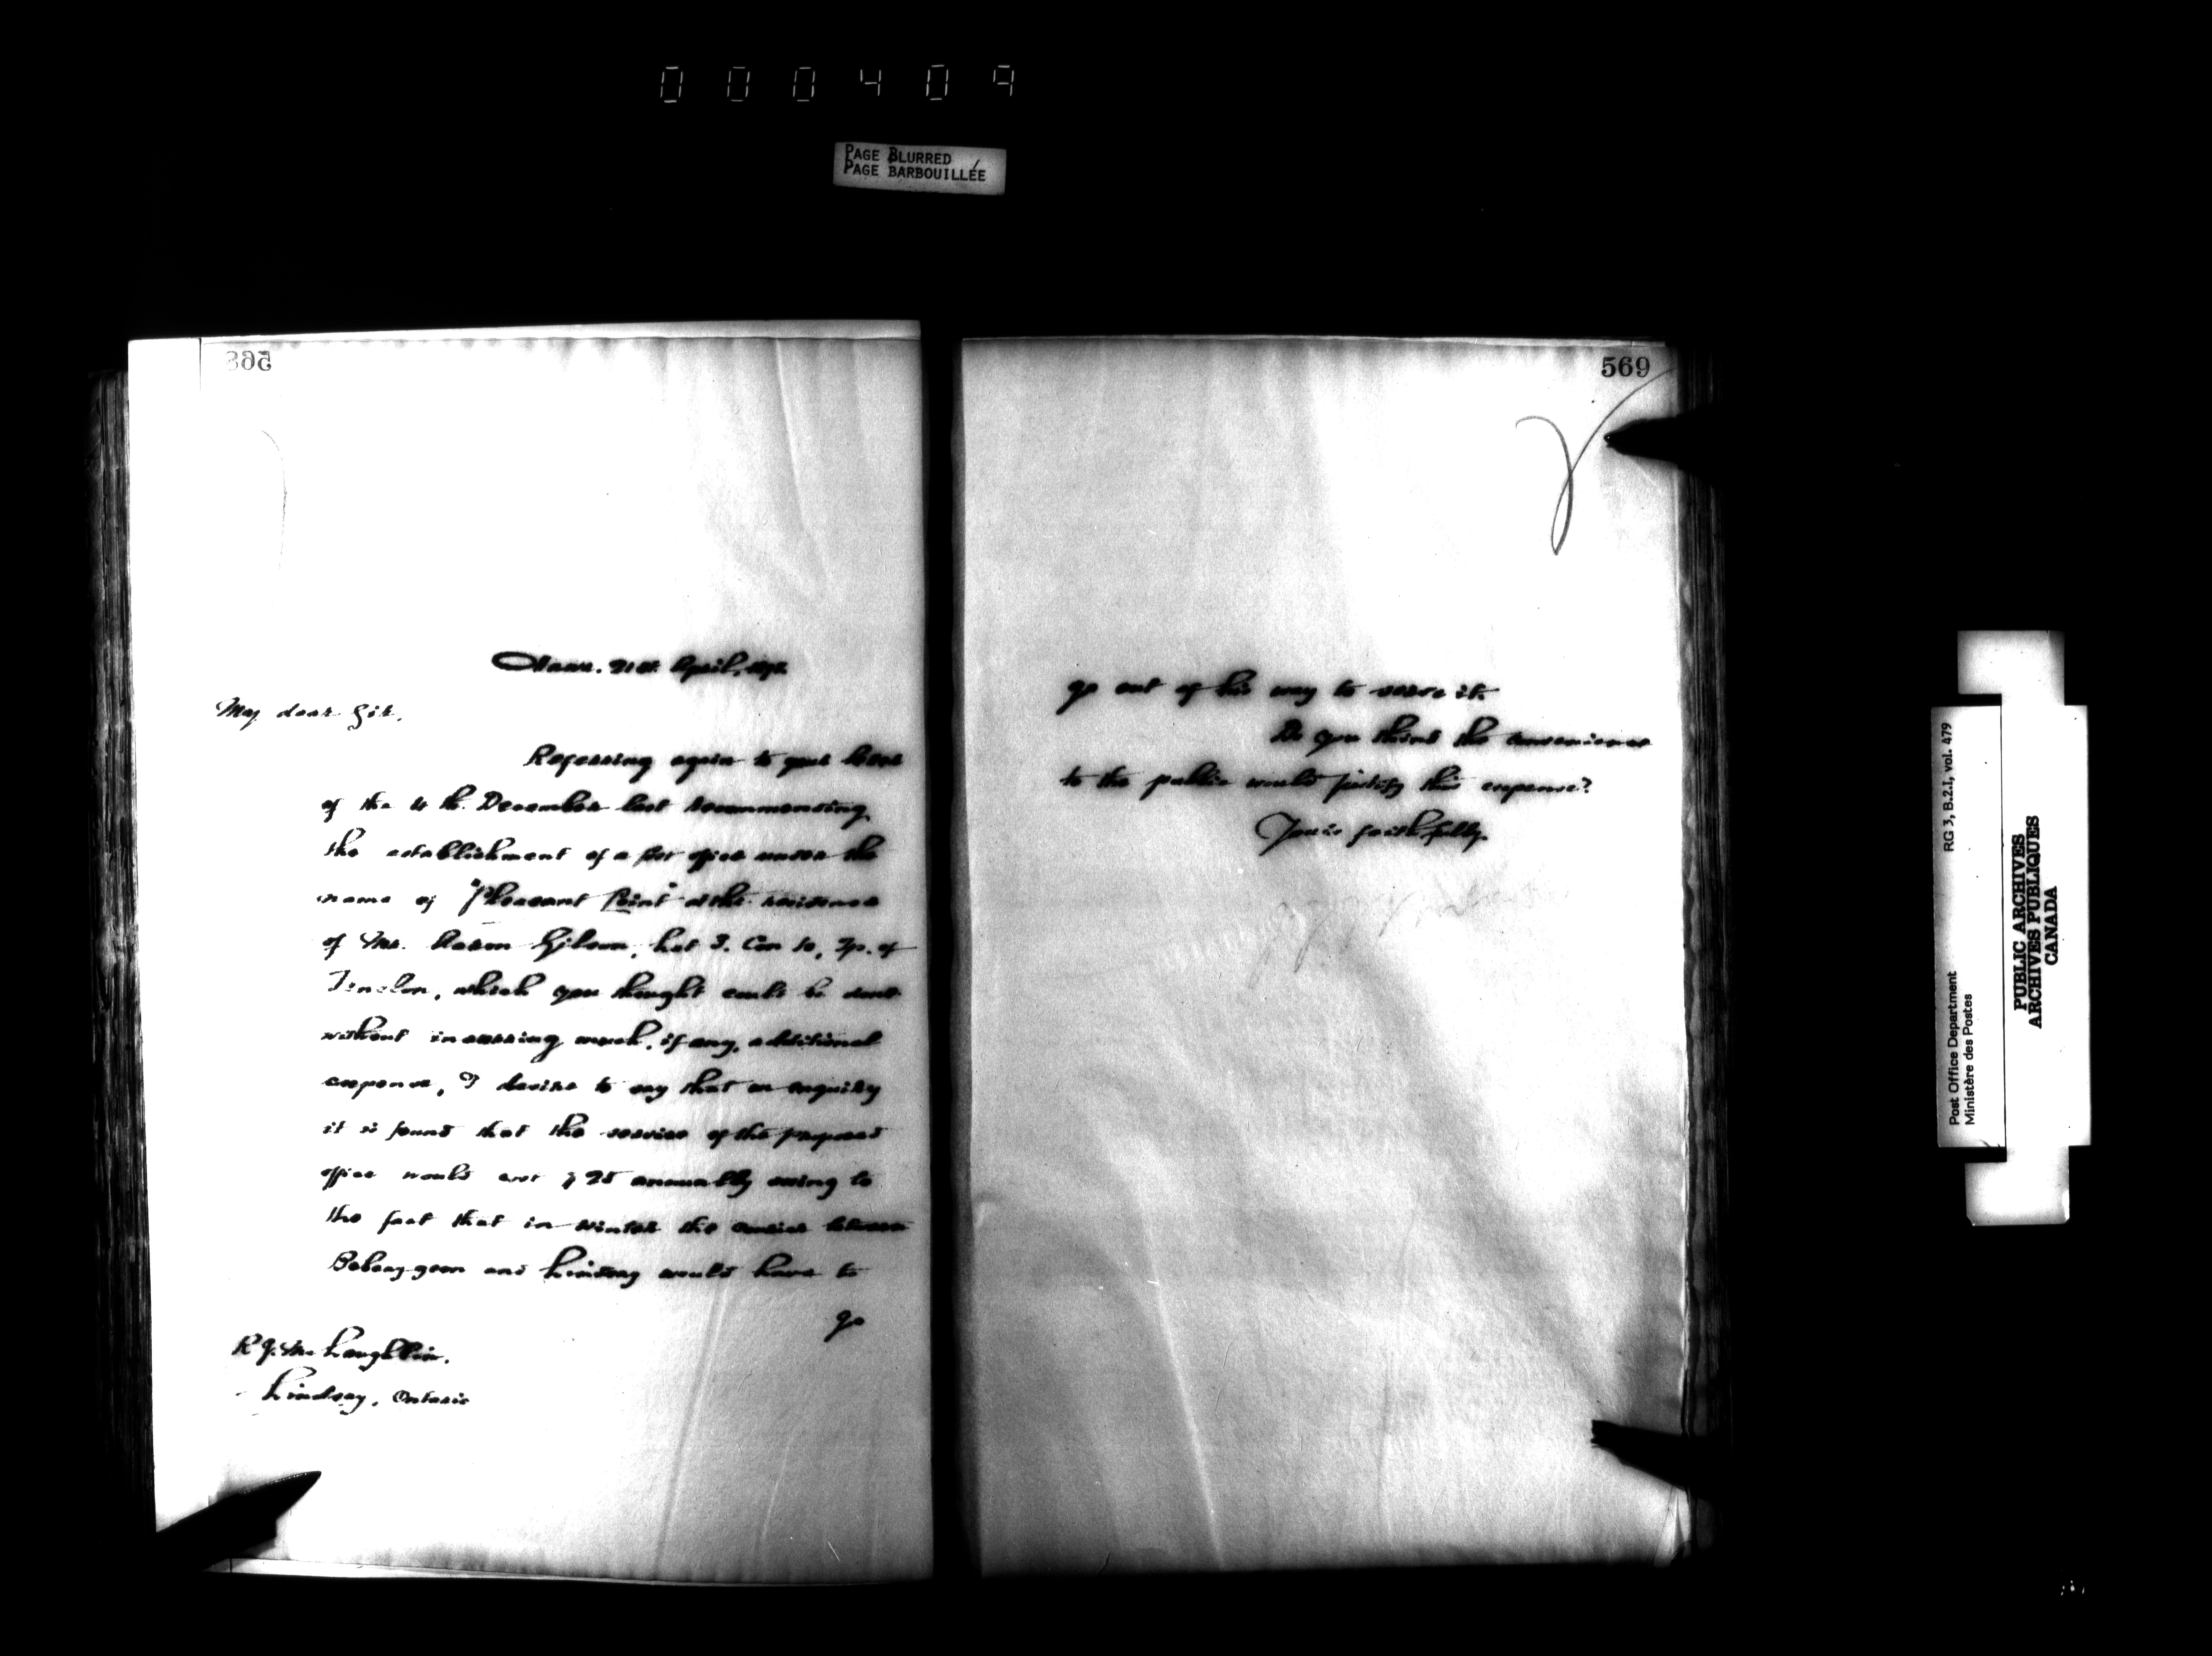 000409
PAGE BLURRED
PAGE BARBOUILLÉE
568
21st April,
My dear Sir,
Referring again to your letter
of the 4th. December last recommending
the establishment of a Post office under the
name of "Pleasant Point" at the residence
of Mr. Aaron Gibson, Lot 3. Con 10, Tp. of
Fenelon, which you thought could be done
without incurring much, if any, additional
expense, I desire to say that on enquiry
it is found that the service of the proposed
office would cost $25 annually owing to
the fact that in winter the courier between
Bobcaygeon and Lindsay would have to
go
R. J. McLaughlin.
Lindsay, Ontario
569
go out of his way to serve it.
Do you think the convenience
to the public would justify this expense?
Yours faithfully,
Post Office Department
Ministère des Postes
RG 3, B.2.I, vol. 479
PUBLIC ARCHIVES
ARCHIVES PUBLIQUES
CANADA